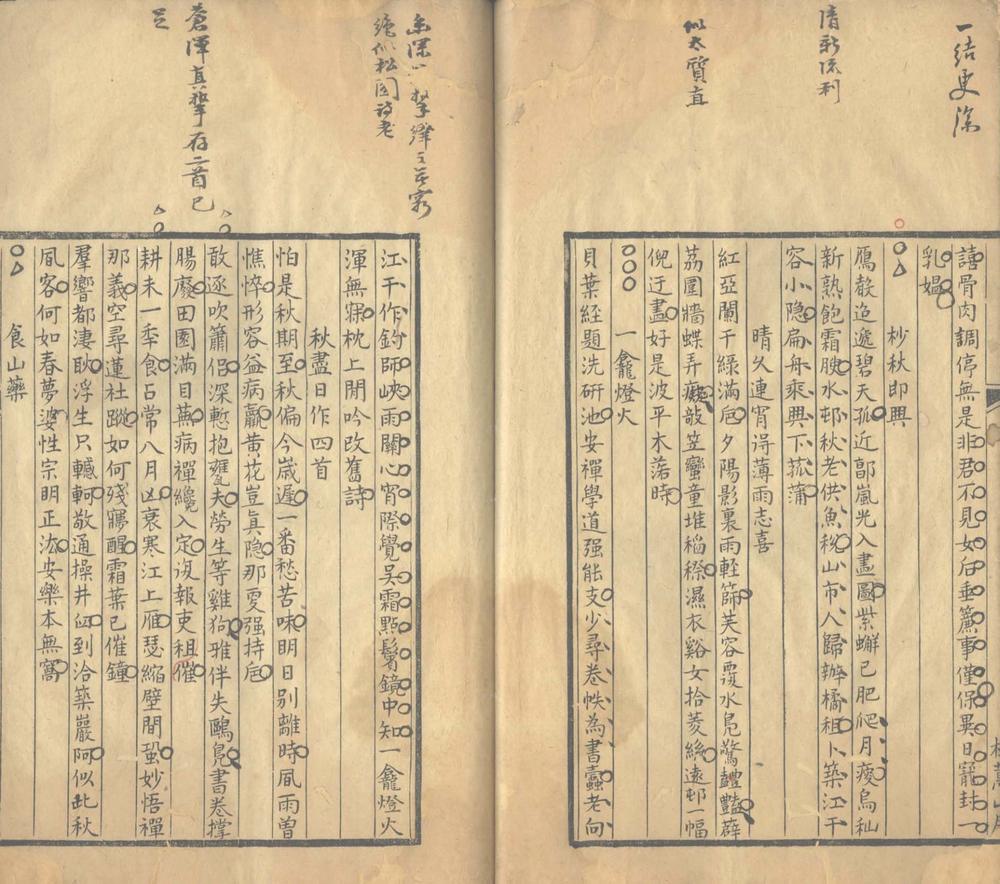 一結更深
清新流利
似太質直
絕似松圓詩老
蒼渾真摯存二首已
足
譆骨肉調停無是非君不見女后垂簾事僅保異日寵封一
乳媼
杪秋即興
鴈聲迢遞碧天孤近郭嵐光入畫圖紫蠏已肥爬月瘦烏秈
新熟飽霜腴水邨秋老供魚稅山市人歸辦橘租卜築江干
容小隐扁舟乘興下菰蒲
晴久連宵得薄雨志喜
紅亞闌干綠滿巵夕陽影裏雨輕篩芙容覆水鳧驚豔薜
荔圍牆蝶弄癡敲笠蠻童堆稻穄濕衣谿女拾菱絲遠邨一幅
倪迂畫好是波平木落時
一龕燈火
貝葉經題洗研池安禪學道强能支少尋卷帙為書蠹老向
江干作釣師峽雨關心宵際覺吳霜點鬢鏡中知一龕燈火
渾無寐枕上閒吟改舊詩
秋盡日作四首
怕是秋期至秋偏今歲遲一番愁苦味明日别離時風雨曾
憔悴形容益病羸黄花豈真隐那夏强持巵
敢逐吹簫侶深慙抱甕夫勞生等雞狗雅伴失鷗鳧書卷撑
腸廢田園滿目蕪病禪纔入定復報吏租催
耕未一季食占常八月凶衰寒江上雁瑟縮壁間蛩妙悟禪
那義空尋蓮社蹤如何殘寤醒霜葉已催鐘
羣響都淒耿浮生只轗軻敬通操井臼到洽築巖阿似此秋
風客何如春夢婆性宗明正法安樂本無窩
食山藥